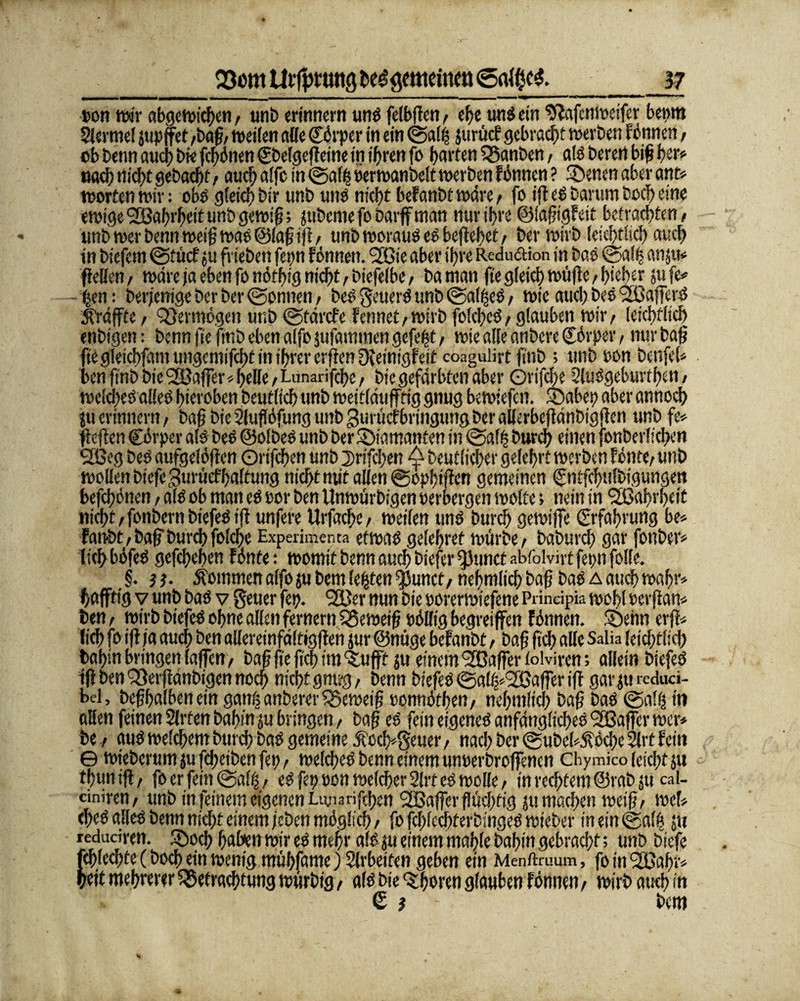 Vom Ursprung des gemeinen Salzes. 37
von wir abgewichen, und erinnern uns selbsten, ehe uns ein Nasenweiser beym
Aermel zupffet, daß, weilen alle Cörper in ein Saltz zurück gebracht werden können,
ob denn auch die schönen Edelgesteine in ihren so harten Banden, als deren biß her-
nach nicht gedacht, auch also in Saltz verwandelt werden können? Denen aber ant-
worten wir: obs gleich dir und uns nicht bekandt wäre, so ist es darum doch eine
ewige Wahrheit und gewiß; zudeme so darff man nur ihre Glaßigkeit betrachten,
und wer denn weiß was Glaß ist, und woraus es bestehet, der wird leichtlich auch
in diesem Stück zu frieden seyn können. Wie aber ihre Reduction in das Saltz anzu-
stellen, wäre ja eben so nöthig nicht, dieselbe, da man sie gleich wüste, hieher zu se-
tzen: derjenige der der Sonnen, des Feuers und Saltzes, wie auch des Wassers
Kräffte, Vermögen und Stärcke kennet, wird solches, glauben wir, leichtlich
endigen: denn sie sind eben also zusammen gesetzt, wie alle andere Cörper, nur daß
sie gleichsam ungemischt in ihrer ersten Reinigkeit coagulirt sind; und von denselben
den sind die Wasser-helle, Lunarische, die gefärbten aber Orische Ausgeburthen,
welches alles hieroben deutlich und weitläufftig gnug bewiesen. Dabey aber annoch
zu erinnern, daß die Auflösung und Zurückbringung der allerbeständigsten und fe-
stesten Cörper als des Goldes und der Diamanten in Saltz durch einen sonderlichen
Weg des aufgelösten Orischen und Irischen 🜍 deutlicher gelehrt werden könte, und
wollen diese Zurückhaltung nicht mit allen Sophisten gemeinen Entschuldigungen
beschönen, als ob man es vor den Unwürdigen verbergen wolte; nein in Wahrheit
nicht, sondern dieses ist unsere Ursache, weilen uns durch gewisse Erfahrung be-
kandt, daß durch solche Experimenta etwas gelehret würde, dadurch gar sonder-
lich böses geschehen könte: womit denn auch dieser Punct absolvirt seyn solle.
§. 33. Kommen also zu dem letzten Punct, nehmlich daß das △ auch wahr-
hafftig ▽ und das ▽ Feuer sey. Wer nun die vorerwiesene Principia wohl verstan-
den, wird dieses ohne allen fernern Beweiß völlig begreiffen können. Denn erst-
lich so ist ja auch den allereinfältigsten zur Gnüge bekandt, daß sich alle Salia leichtlich
dahin bringen lassen, daß sie sich im Lufft zu einem Wasser solviren; allein dieses
ist den Verständigen noch nicht gnug, denn dieses Saltz-Wasser ist gar zu reduci-
bel, deßhalben ein gantz anderer Beweiß vonnöthen, nehmlich daß das Saltz in
allen seinen Arten dahin zu bringen, daß es sein eigenes anfängliches Wasser wer-
de, aus welchem durch das gemeine Koch-Feuer, nach der Sudel-Köche Art kein
🜔 wiederum zu scheiden sey, welches denn einem unverdrossenen Chymico leicht zu
thun ist, so er sein Saltz, es sey von welcher Art es wolle, in rechtem Grad zu cal-
ciniren, und in seinem eigenen Lunarischen Wasser flüchtig zu machen weiß, wel-
ches alles denn nicht einem jeden möglich, so schlechterdinges wieder in ein Saltz zu
reduciren. Doch haben wir es mehr als zu einem mahle dahin gebracht; und diese
schlechte (doch ein wenig mühsame) Arbeiten geben ein Menstruum, so in Wahr-
heit mehrerer Betrachtung würdig, als die Thoren glauben können, wird auch in
E 3 dem